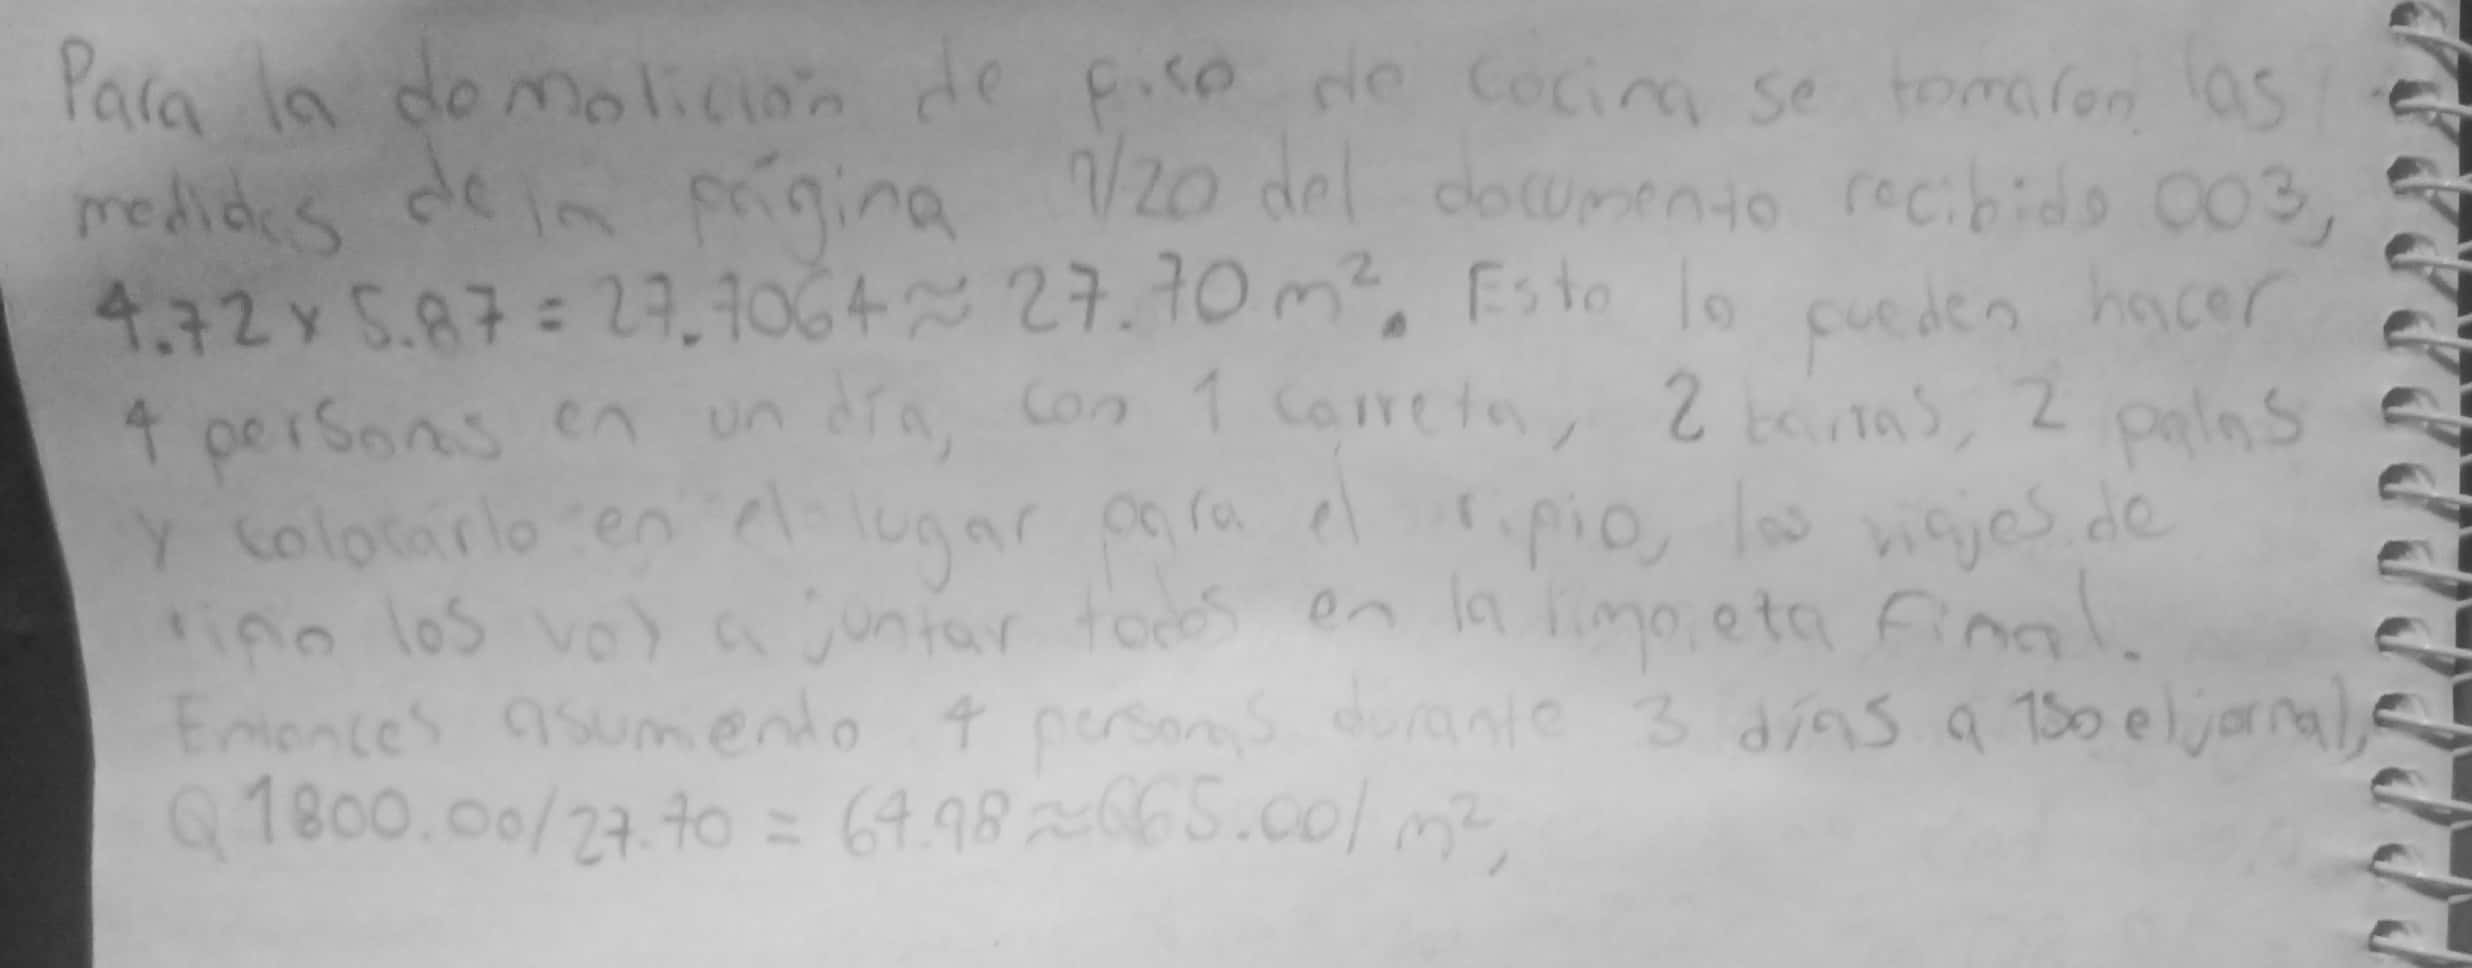 Para la demolición de piso de cocina se tomaron las
medidas de la página 7/20 del documento recibido 003,
4.72 x 5.87 = 27.7064 ≈ 27.70 m². Esto lo pueden hacer
4 personas en un día, con 1 carreta, 2 barras, 2 palas
y colocarlo en el lugar para el ripio, los viajes de
ripio los voy a juntar todos en la limpieta final.
Entonces asumiendo 4 personas durante 3 días a 150 el jornal,
Q1800.00/27.70 = 64.98 ≈ Q65.00/m²,